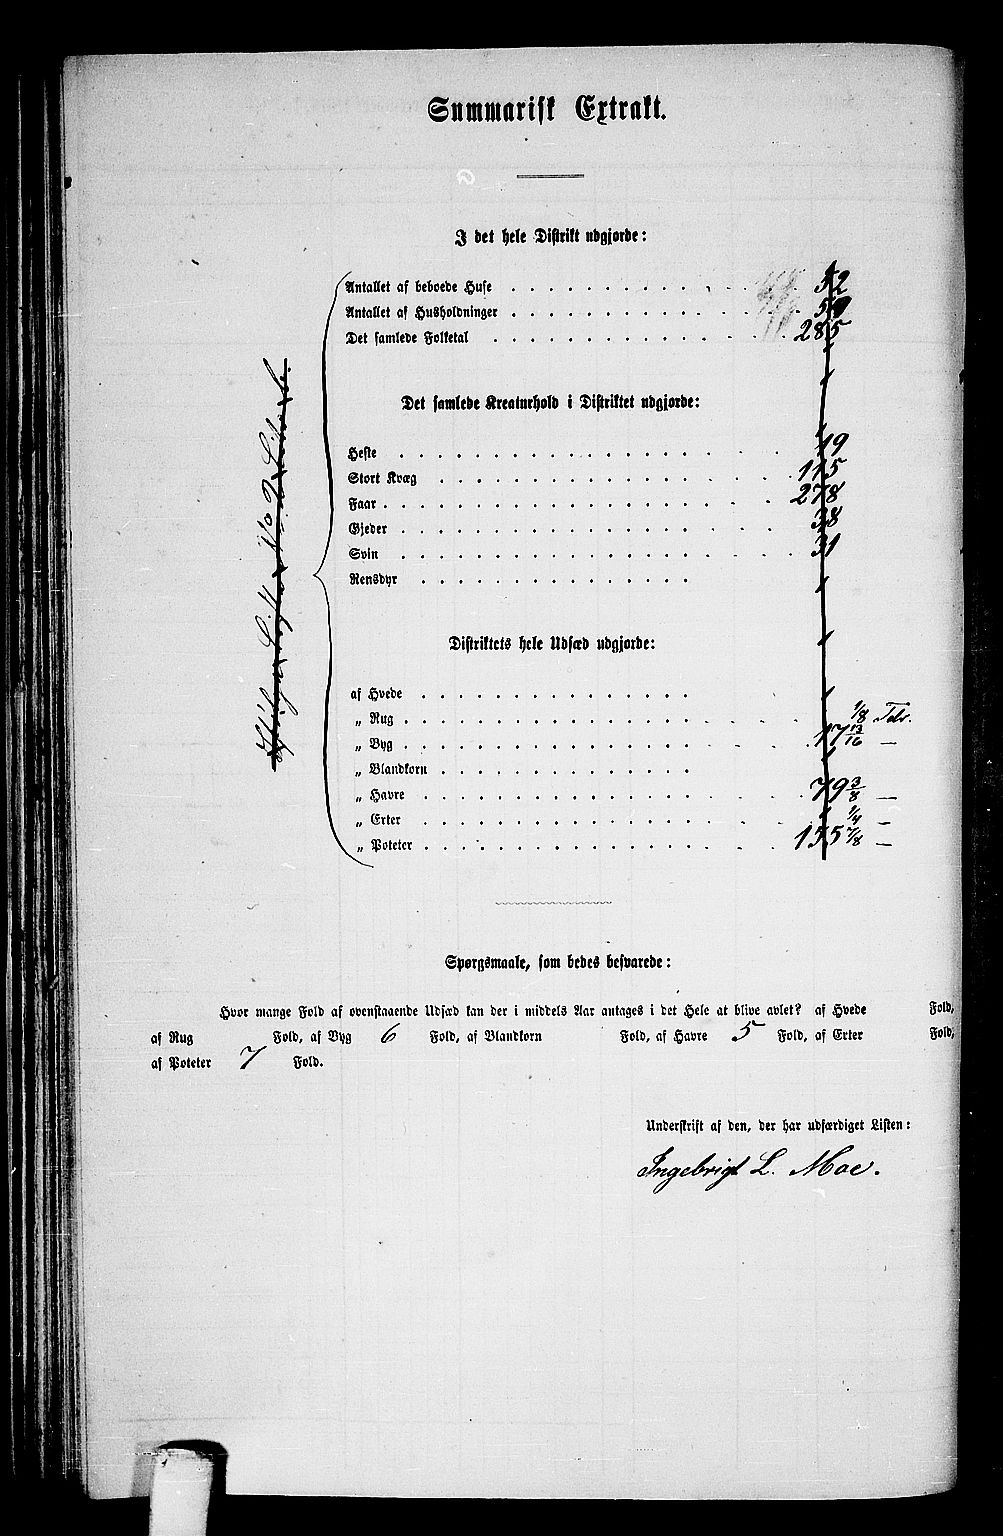 Summarisk Extrakt.
I det hele Distrikt udgjorde:
Antallet af beboede Huse . . . 52
Antallet af Husholdninger . . . 59
Det samlede Folketal . . . 285
Det samlede Kreaturhold i Distriktet udgjorde:
Heste . . . 19
Stort Kvæg . . . 115
Faar . . . 278
Gjeder . . . 38
Svin . . . 31
Rensdyr . . .
Distriktets hele Udsæd udgjorde:
af Hvede . . .
„ Rug . . . 1/8 Tdr.
„ Byg . . . 17 13/16 —
„ Blandkorn . . .
„ Havre . . . 79 3/8 —
„ Erter . . . 1/4 —
„ Poteter . . . 135 7/8 —
Spørgsmaale, som bedes besvarede:
Hvor mange Fold af ovenstaaende Udsæd kan der i middels Aar antages i det Hele at blive avlet? af Hvede Fold,
af Rug Fold, af Byg 6 Fold, af Blandkorn Fold, af Havre 5 Fold, af Erter Fold,
af Poteter 7 Fold.
Underskrift af den, der har udfærdiget Listen:
Ingebrigt L. Moe.